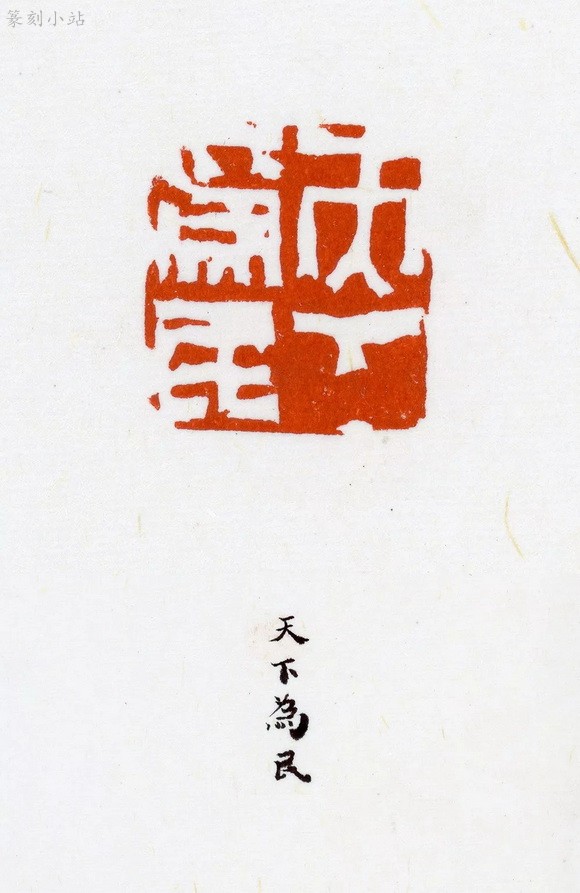 篆刻小站
天下為民
天下為民